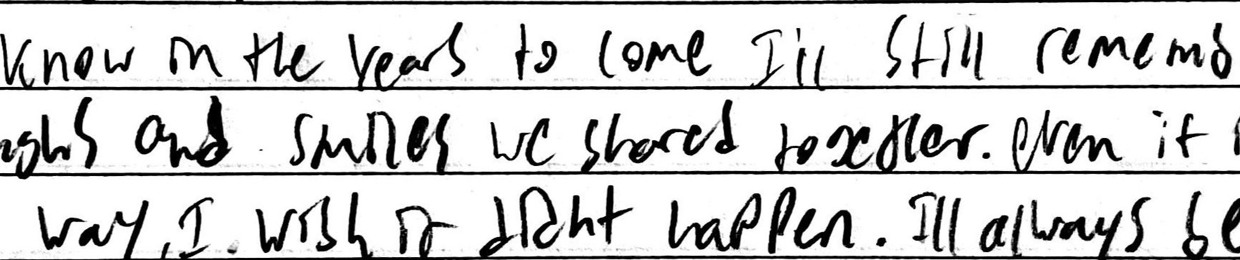 know in the years to come I'll still rememb
and smiles we shared together. even it
way, I wish it didnt happen. Ill always be